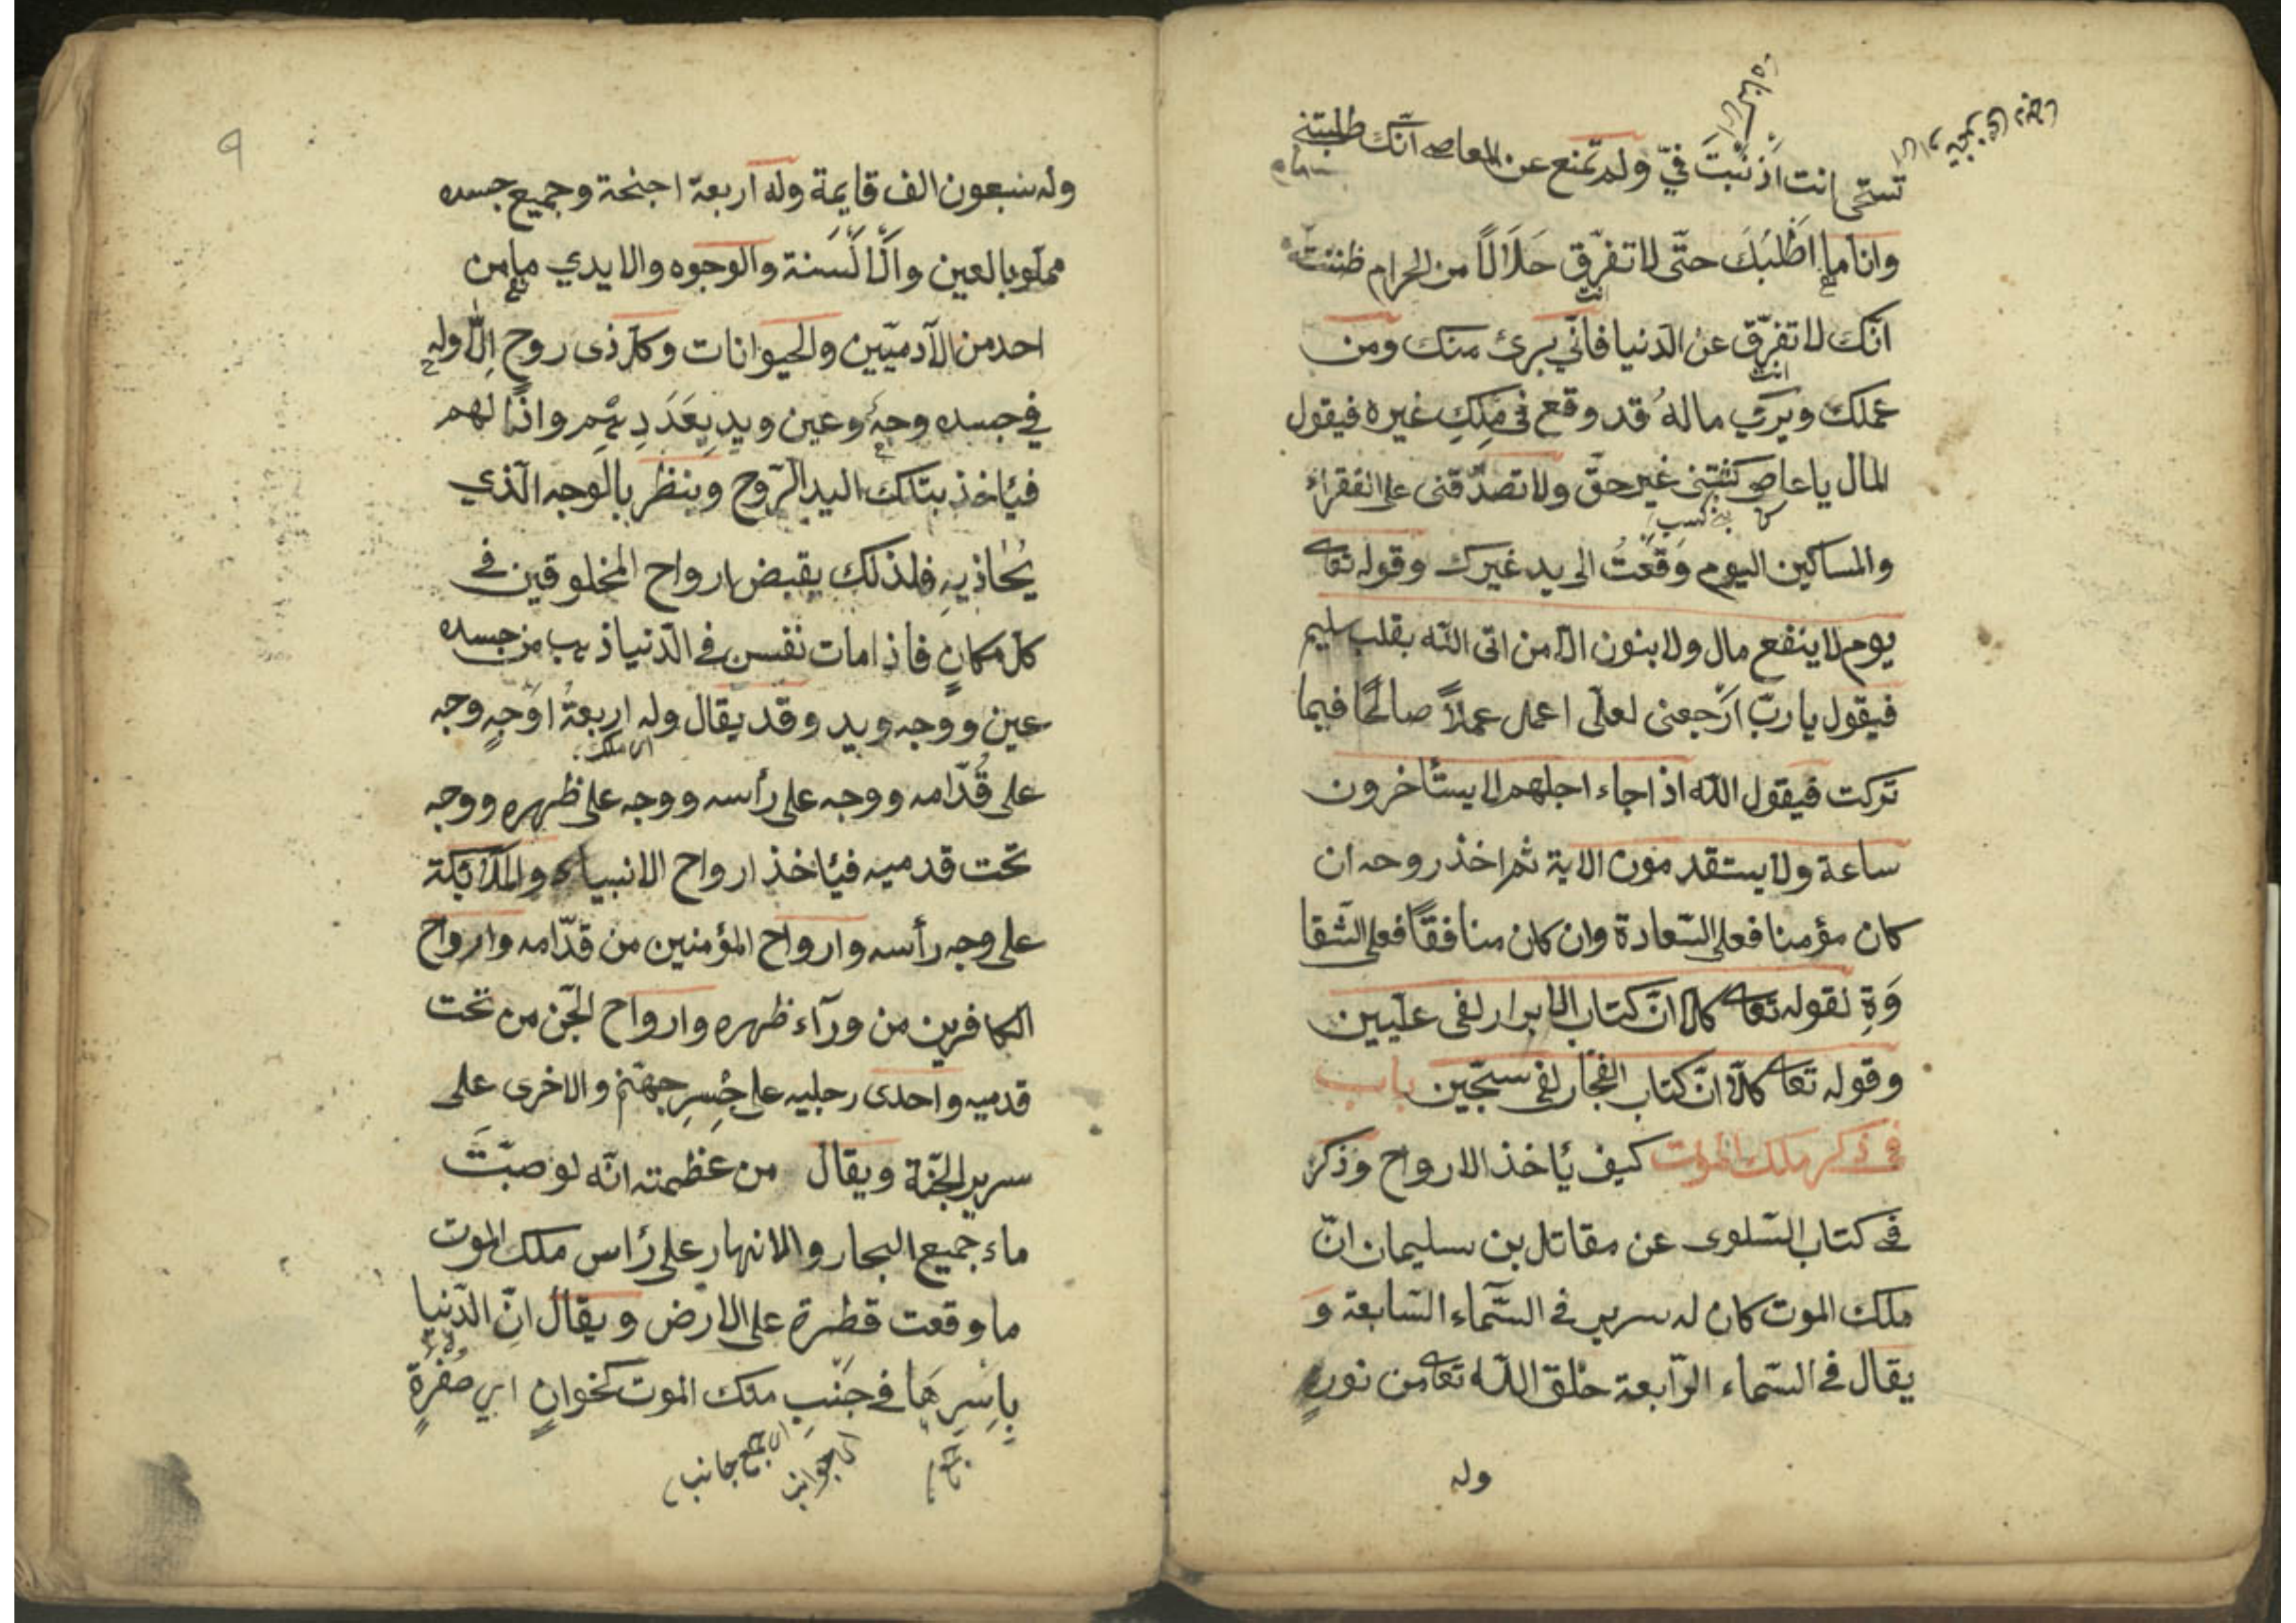 تستحي انت اذنبت فيّ ولم تمنع عن المعاصي انّك طلبتني
وانا ما اطلبك حتّى لا تفرّق حلالاً من الحرام ظننت
انّك لا تفرّق عن الدنيا فانّي برئ منك ومن
انت
عملك ويرى ماله قد وقع في ملك غيره فيقول
انت
المال يا عاصي كسبتني غير حقّ ولا تصدّقتني على الفقراء
والمساكين اليوم وقعت الى يد غيرك وقوله تعا
يوم لا ينفع مال ولا بنون الّا من اتى الله بقلب سليم
فيقول يا ربّ ارجعنى لعلّى اعمل عملاً صالحًا فيما
تركت فيقول الله اذا جاء اجلهم لا يستأخرون
ساعة ولا يستقدمون الاية ثم اخذ روحه ان
كان مؤمنا فعلى السّعادة وان كان منافقًا فعلى الشّقا
وَةِ لقوله تعا كلّا انّ كتاب الابرار لفى علّيين
وقوله تعا كلّا انّ كتاب الفجّار لفى سجّين باب
فى ذكر ملك الموت كيف يأخذ الارواح وذكر
فى كتاب السّلوى عن مقاتل بن سليمان انّ
ملك الموت كان له سرير فى السّماء السّابعة و
يقال فى السّماء الرّابعة خلق الله تعا من نورٍ
وله
٩
وله سبعون الف قايمة وله اربعة اجنحة وجميع جسده
مملو بالعين والالسنة والوجوه والايدي ما من
احد من الآدميّين والحيوانات وكل ذى روح الّا وله
في جسده وجه وعين ويد بعدد
فيأخذ بتلك اليد الرّوح وينظر بالوجه الّذي
يُحاذيهِ فلذلك يقبض ارواح المخلوقين فى
كلّ مكانٍ فاذا مات نفس فى الدّنيا ذهب من جسده
عين ووجه ويد وقد يقال وله اربعةُ اوجهٍ وجه
اى ملك
على قُدّامه ووجه على رأسه ووجه على ظهره ووجه
تحت قدميه فيأخذ ارواح الانبياء والملائكة
على وجه رأسه وارواح المؤمنين من قدّامه وارواح
الكافرين من ورآء ظهره وارواح الجّن من تحت
قدميه واحدى رجليه على جسرِ جهنّم والاخرى على
سرير الجنّة ويقال من عظمته انّه لو صبّت
ماء جميع البحار والانهار على رأس ملك الموت
ما وقعت قطرة على الارض ويقال انّ الدّنيا
باسرِها فى جنبِ ملك الموت كخوانٍ اي صفرةٍ
اى جوانب